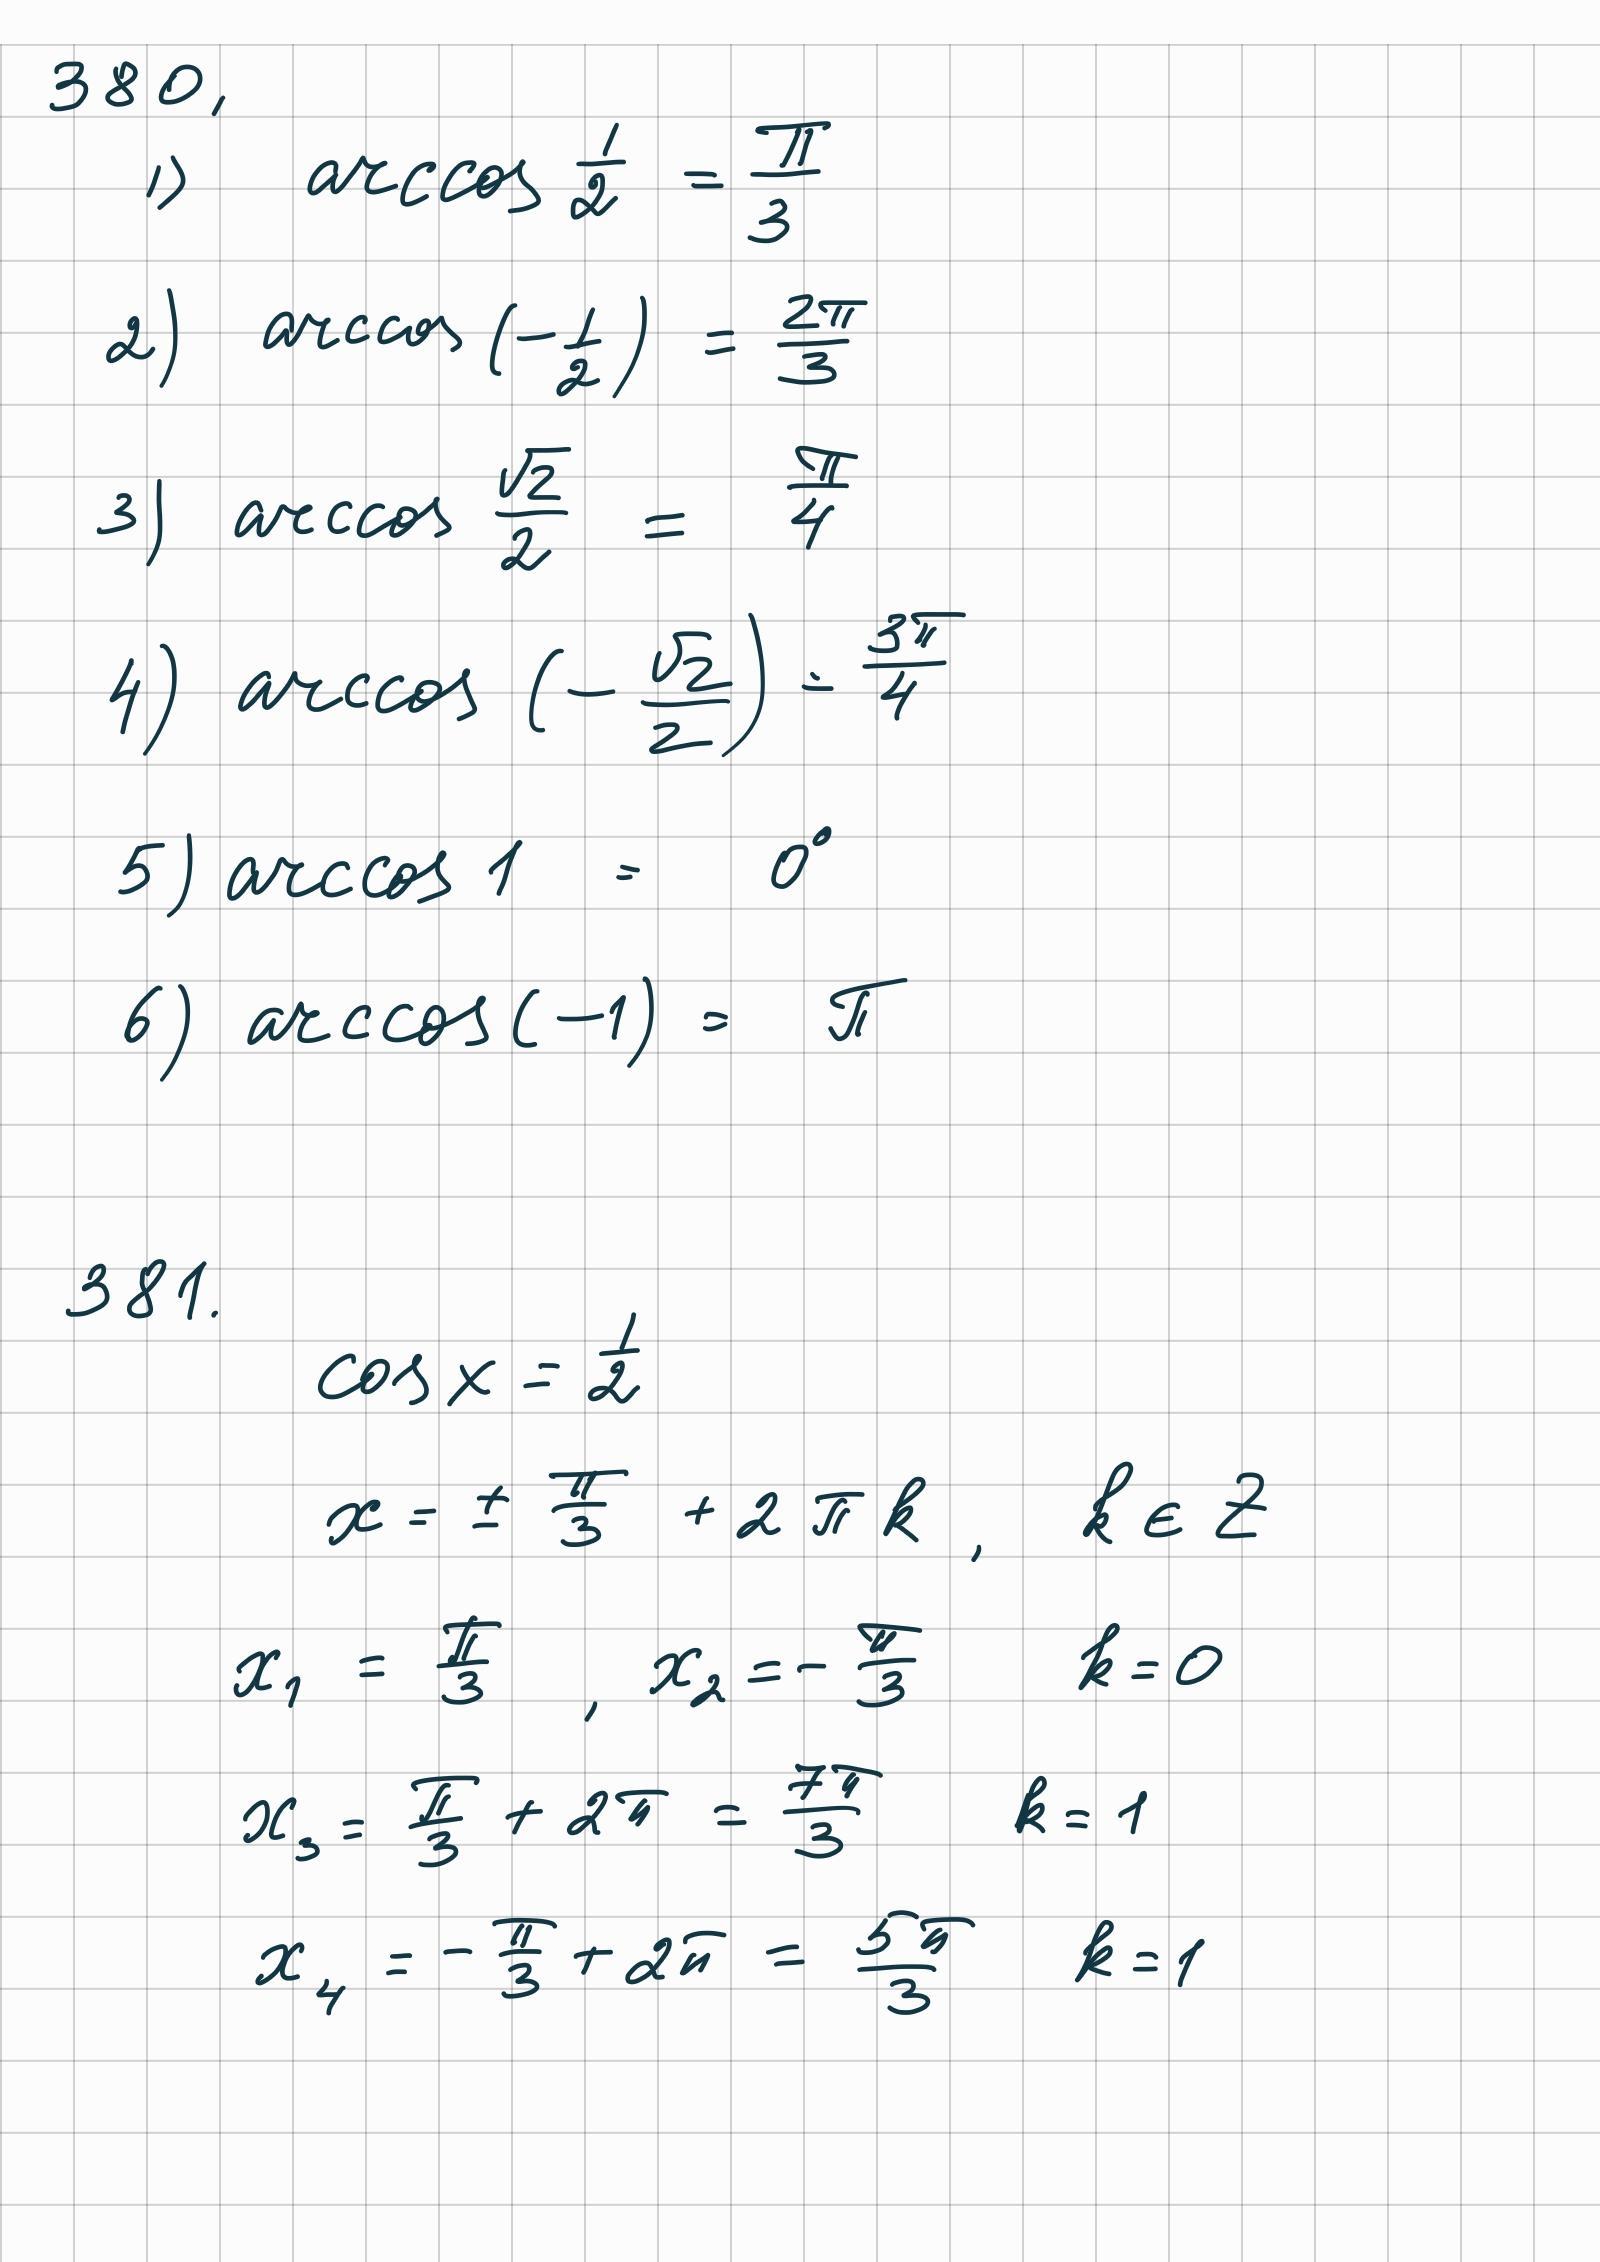 380,
1) arccos 1/2 = π/3
2) arccos (-1/2) = 2π/3
3) arccos √2/2 = π/4
4) arccos (-√2/2) = 3π/4
5) arccos 1 = 0°
6) arccos (-1) = π
381.
cos x = 1/2
x = ± π/3 + 2πk, k ∈ Z
x₁ = π/3, x₂ = - π/3 k = 0
x₃ = π/3 + 2π = 7π/3 k = 1
x₄ = - π/3 + 2π = 5π/3 k = 1